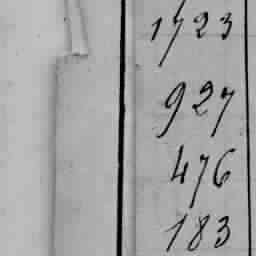 1723
927
476
183